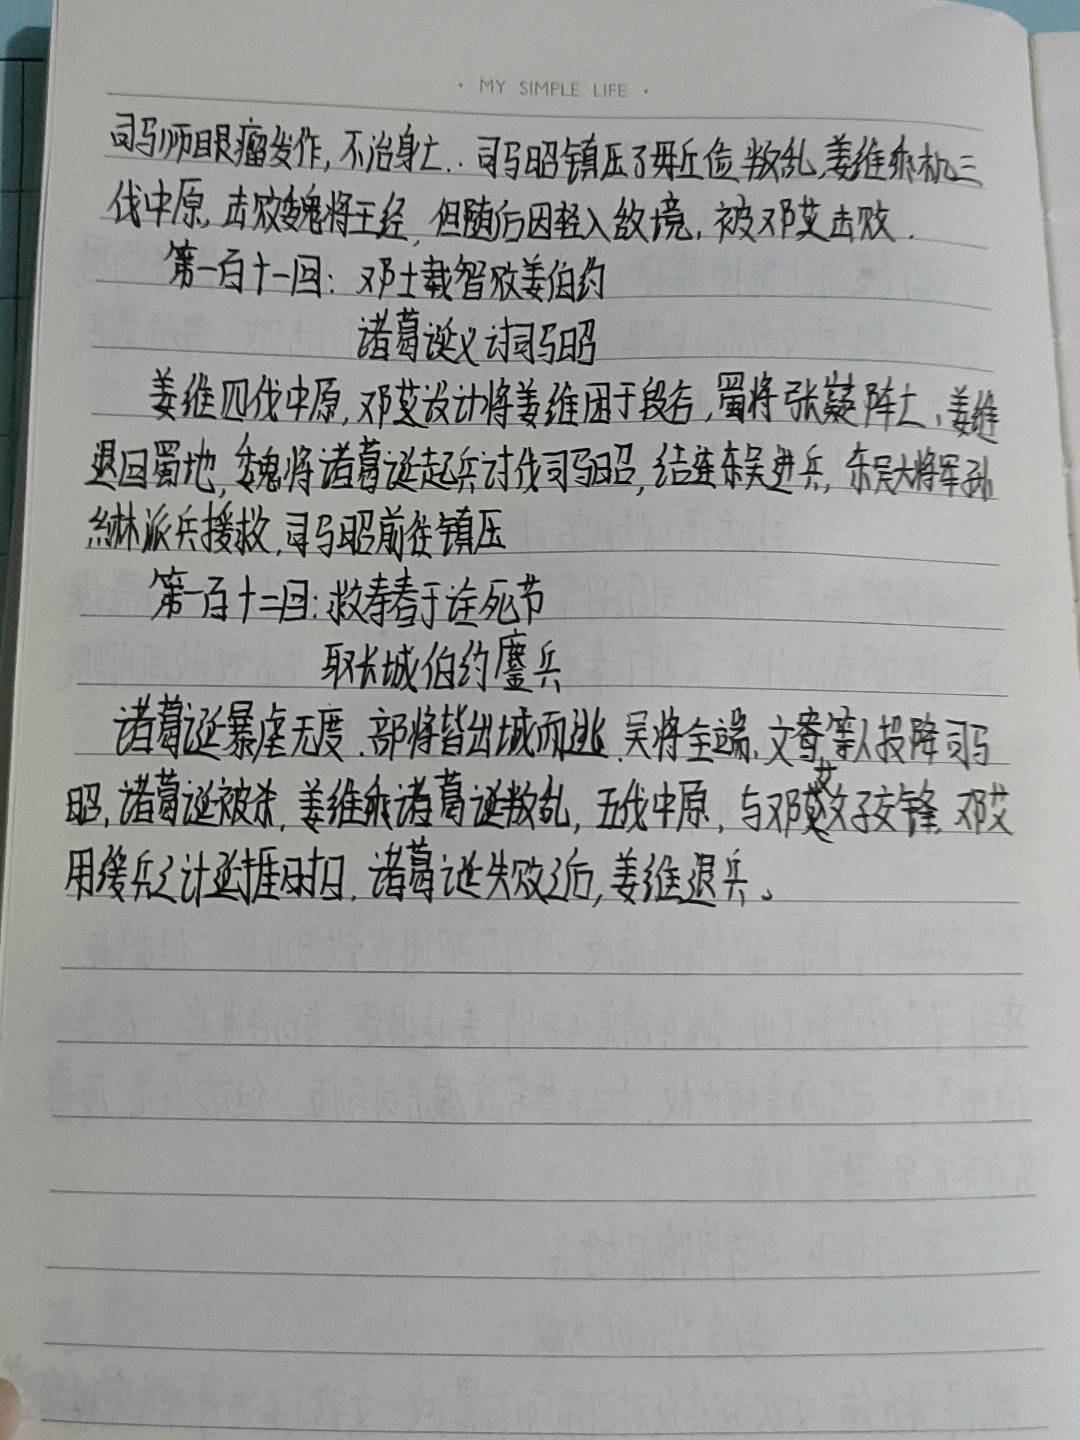 · MY SIMPLE LIFE ·
司马师眼瘤发作，不治身亡．司马昭镇压了毋丘俭叛乱，姜维乘机三
伐中原，击败魏将王经，但随后因轻入敌境，被邓艾击败．
第一百十一回：邓士载智败姜伯约
诸葛诞义讨司马昭
姜维四伐中原，邓艾设计将姜维困于段谷，蜀将张嶷阵亡、姜维
退回蜀地，魏将诸葛诞起兵讨伐司马昭，结连东吴进兵，东吴大将军孙
綝派兵援救，司马昭前往镇压
第一百十二回：救寿春于诠死节
取长城伯约鏖兵
诸葛诞暴虐无度．部将皆出城而逃．吴将全端、文鸯等人投降司马
昭，诸葛诞被杀，姜维乘诸葛诞叛乱，五伐中原，与邓艾父子交锋，邓艾
用缓兵之计延捱时日．诸葛诞失败之后，姜维退兵。